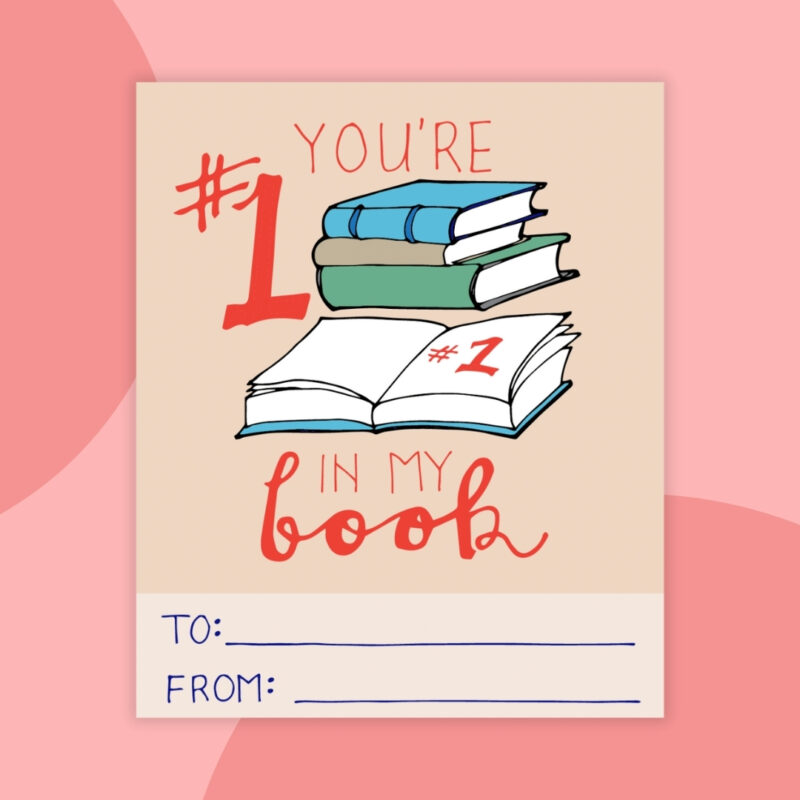 YOU'RE
#1
#1
IN MY
book
TO:
FROM: